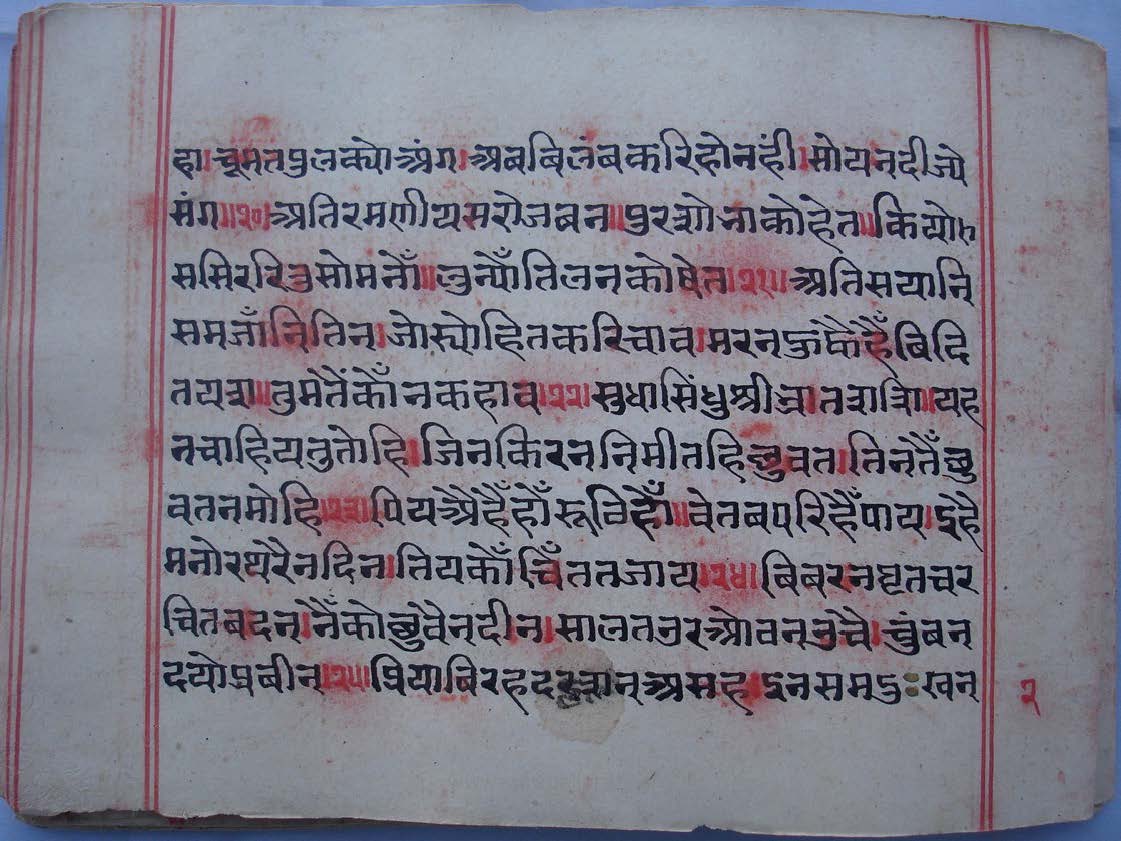 हा।चूमतपुलक्योअंग।अबबिलंबकरिहोनहीं।सोयनदीज्ये
संग॥२०॥अतिरमणीयसरोजबन॥पुरशोनाकोहेत॥कियोत
ससिररितुसोमनौँ॥लुन्यौँतिलनकोषेत॥२१॥अतिसयानि
समजाँनितिन।जोस्योहितकरिचाव।मरन
तयशा॥तुमेतैंकौँनकहाव॥२२॥सुधासिंधुश्रीव्रातराशि॥यह
नचाहियतुतोहि।जिनकिरननिमीतहिछुवत।तिनतैँछु
वतनमोहि॥२३॥पियऔहैँहौँ॥वेतबपरिहैँपाय।
मनोरथरैनदिन।तियकौँचिँततजाय॥२४॥बिबरनघृतचर
चितबदन।नैँकोछुवैनदीन।सालतनुरओवननुचै।चुंबन
दयोप्रबीन॥२५॥प्रियाबिरहअसहइनसमदुःखन
२